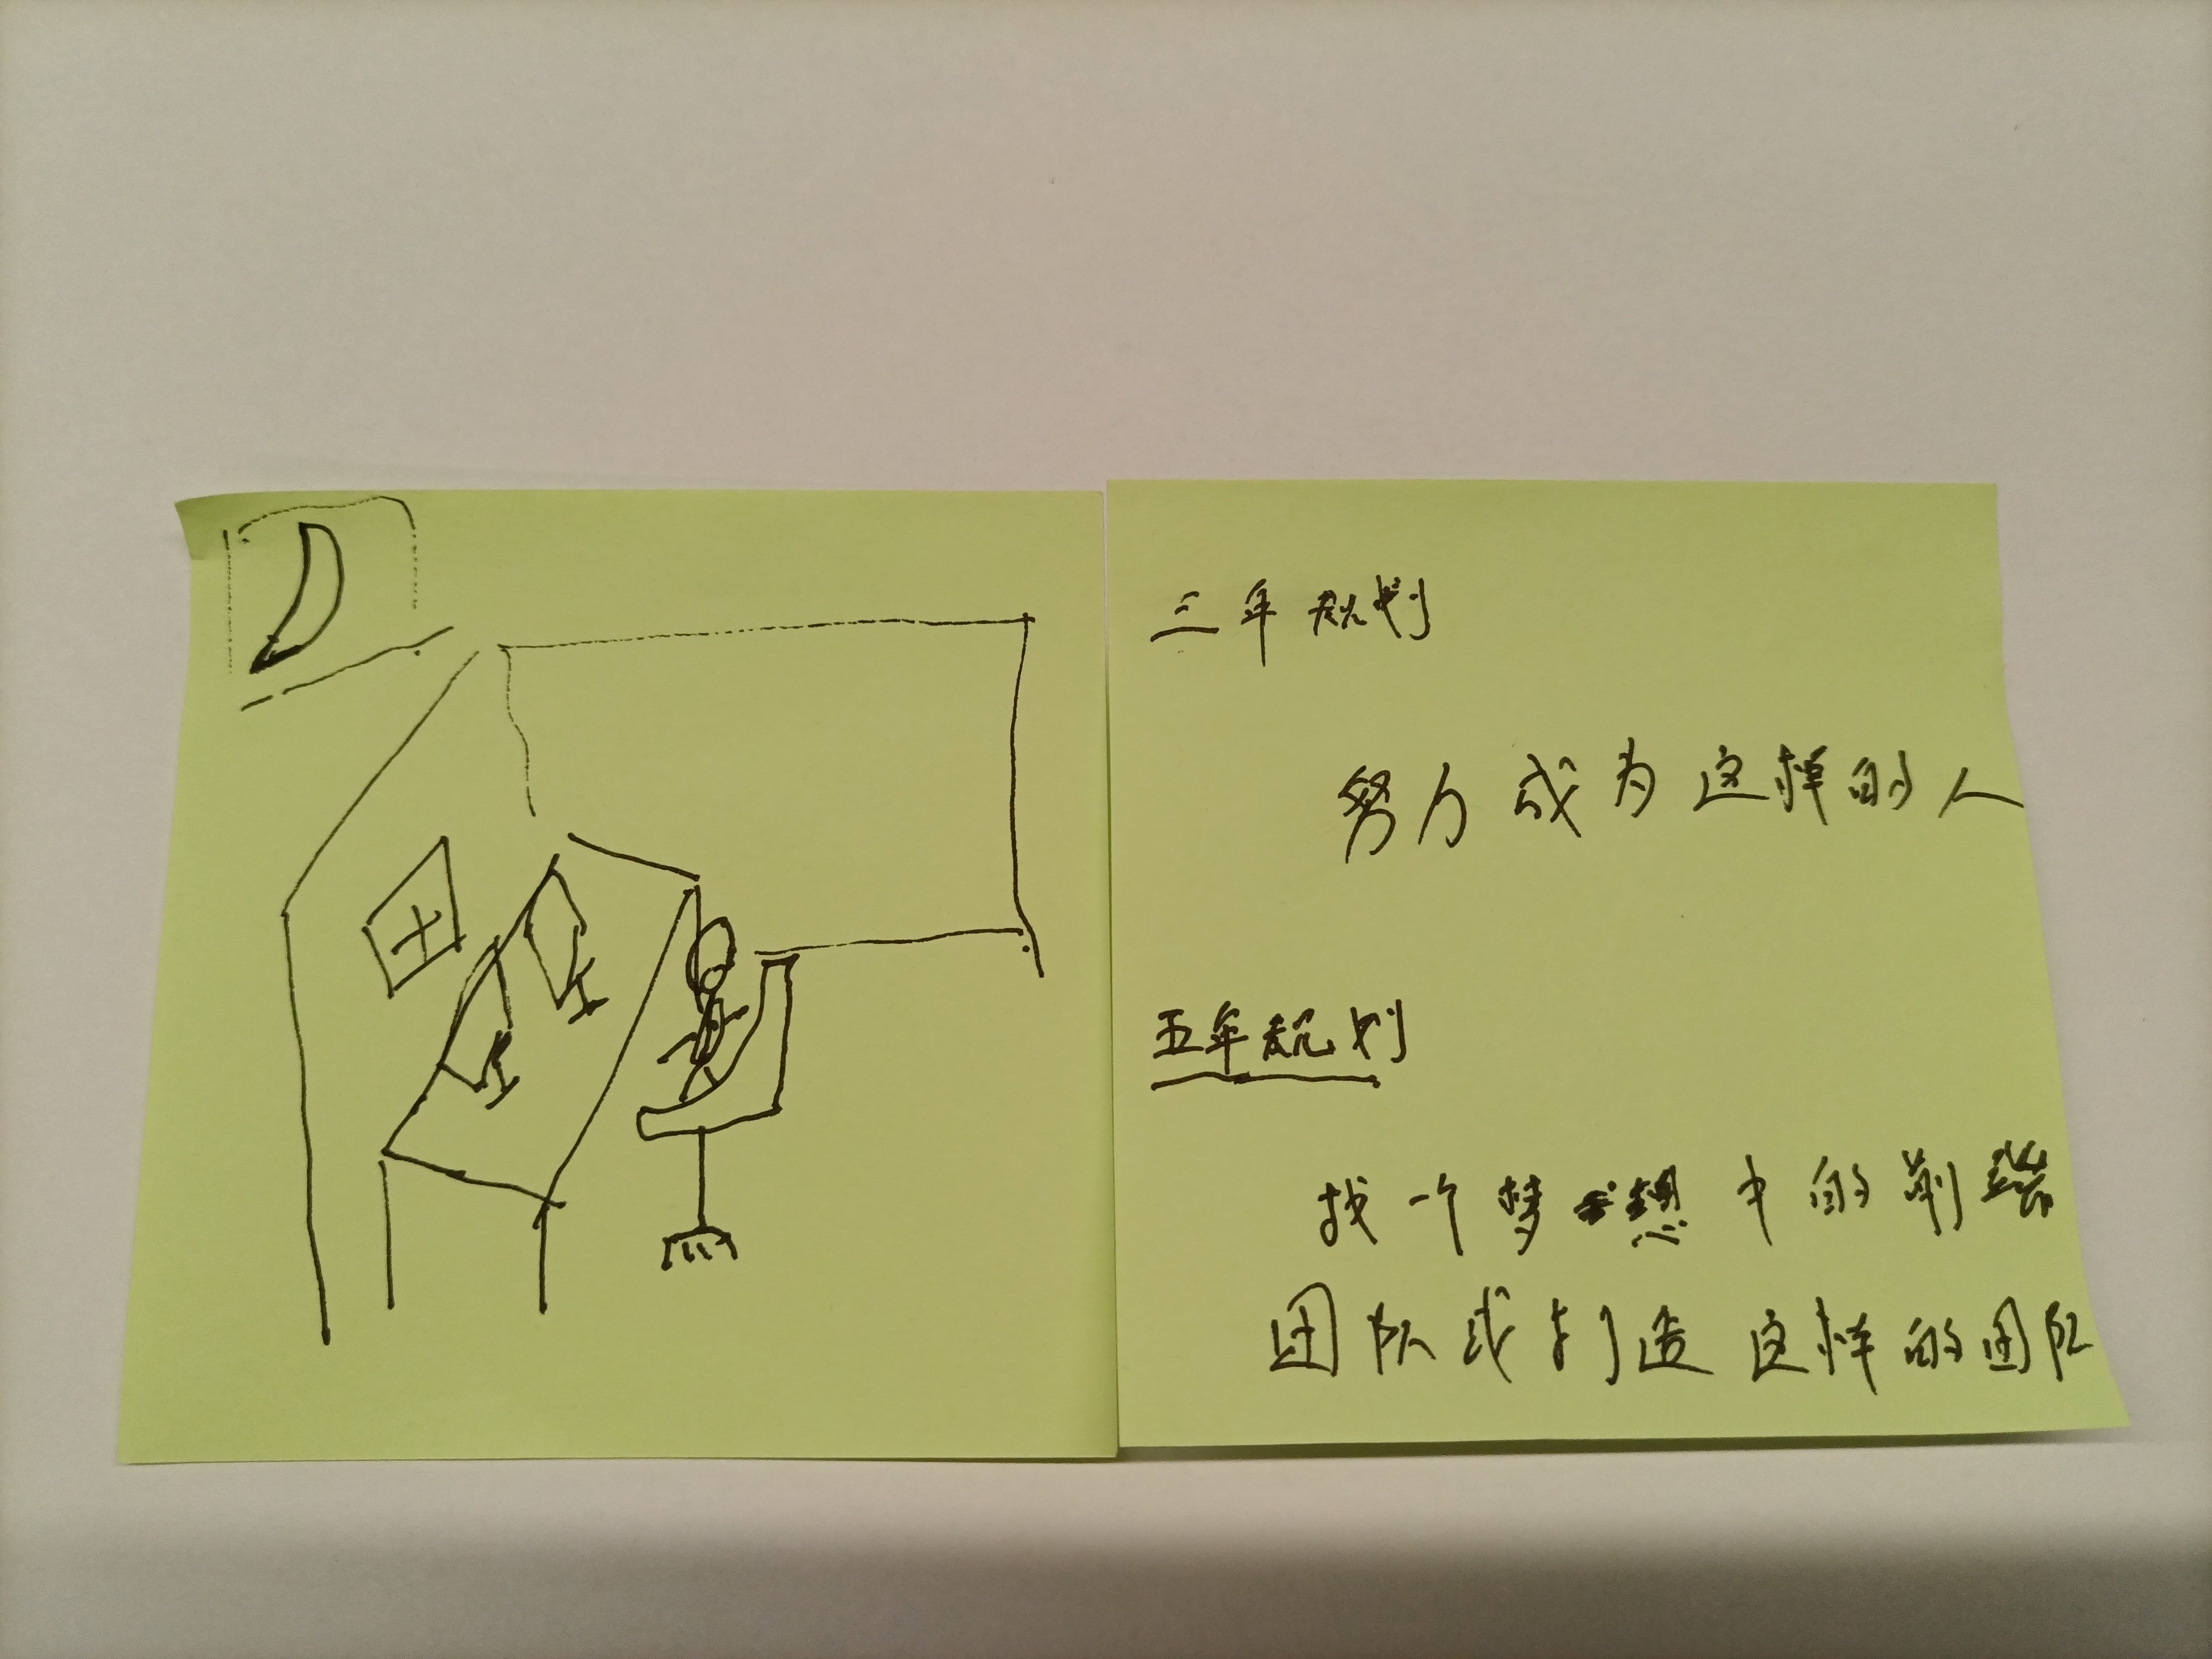 三年规划
努力成为这样的人
五年规划
找一个梦想中的前端
团队或打造这样的团队